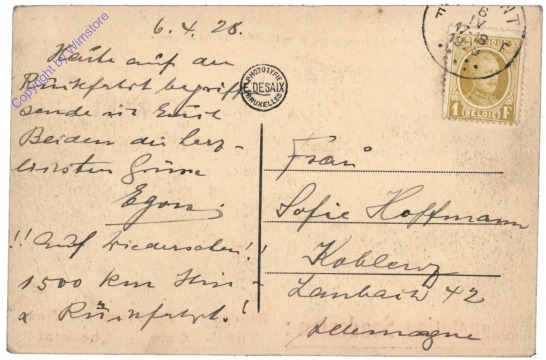 6.4.28.
Heute auf der
Rückfahrt begriffen
sende ich Euch
Beiden die herz-
lichsten Grüsse
Egon
!! Auf Wiedersehen!!
1500 km Hin-
& Rückfahrt!
PHOTOTYPIE
E. DESAIX
BRUXELLES
1 F
BELGIE
Frau
Sofie Hoffmann
Koblenz
Laubach 42
Allemagne
Copyright by Wimstore